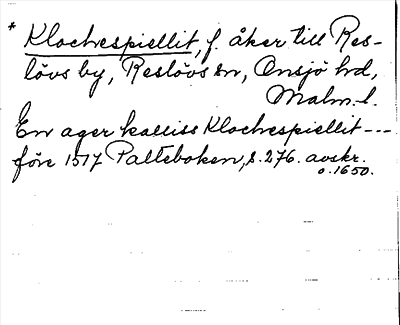 * Klochespiellit, f. åker till Res-
lövs by, Reslövs sn, Onsjö hd,
Malm. l.
En ager kalliss Klochespiellit ---
före 1517 Palteboken, s. 276. avskr.
o. 1650.